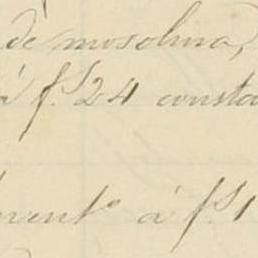 de mosolina,
á f.s 24 consta
vent.o á f.s 1